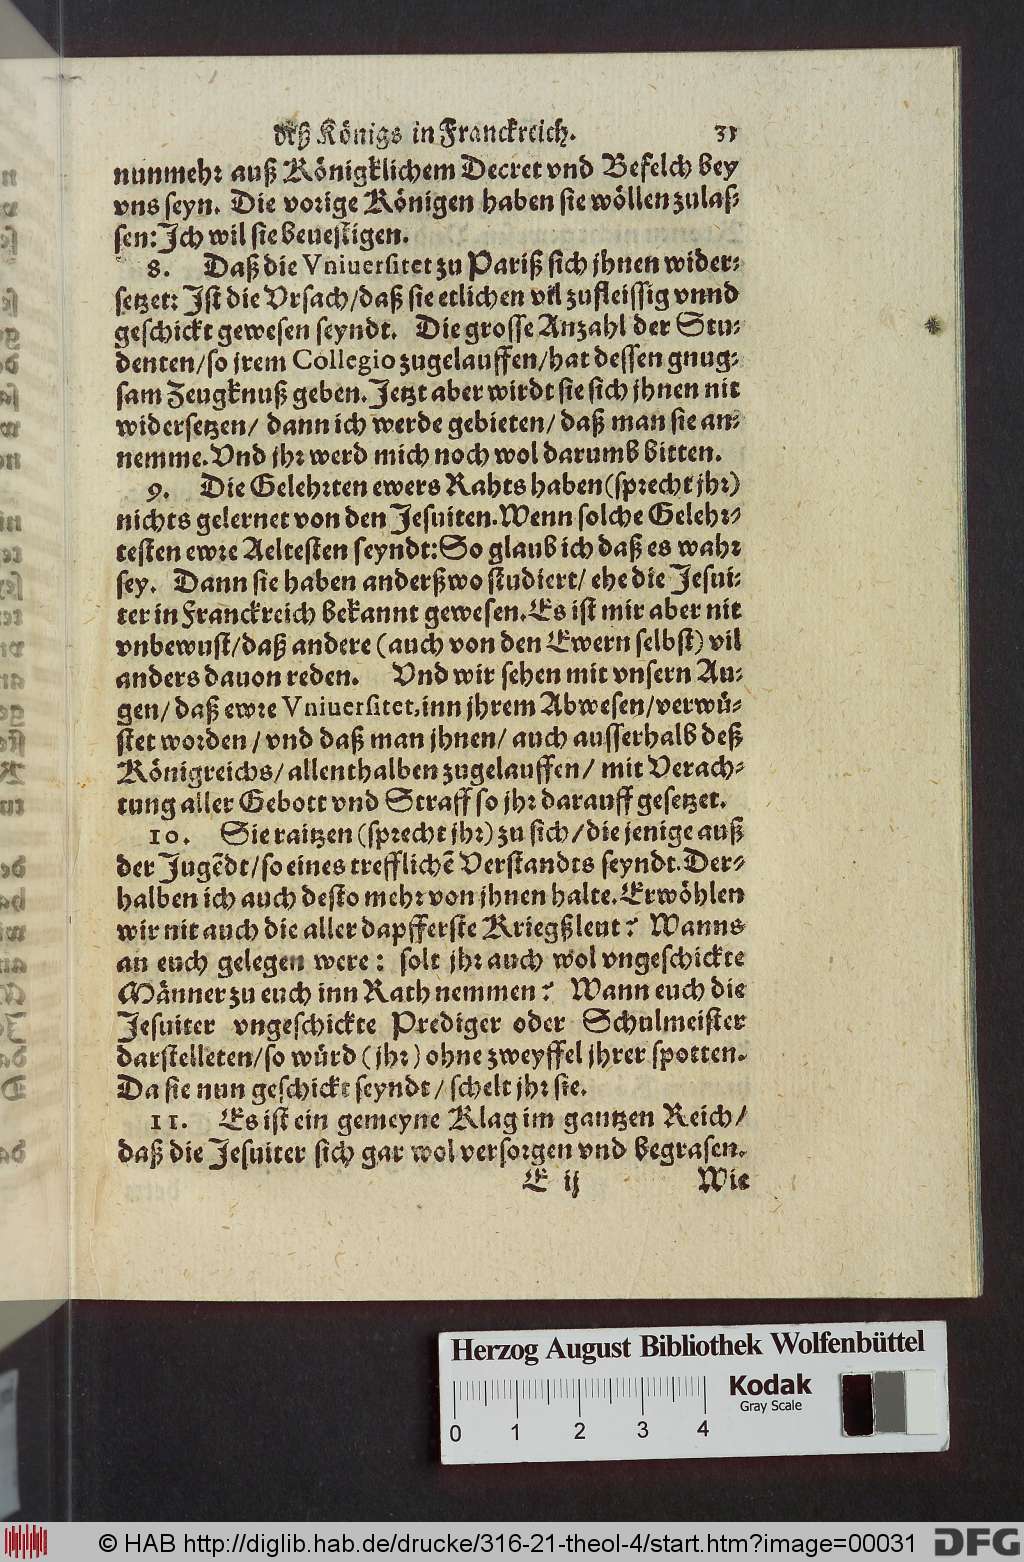 deß Königs in Franckreich. 31
nunmehr auß Königklichem Decret vnd Befelch bey
vns seyn. Die vorige Königen haben sie wöllen zulaß-
sen: Ich wil sie beuestigen.
8. Daß die Vniuersitet zu Pariß sich jhnen wider-
setzet: Ist die Vrsach/daß sie etlichen vil zu fleissig vnnd
geschickt gewesen seyndt. Die grosse Anzahl der Stu-
denten/so jrem Collegio zugelauffen/hat dessen gnug-
sam Zeugknuß geben. Jetzt aber wirdt sie sich jhnen nit
widersetzen/ dann ich werde gebieten/ daß man sie an-
nemme. Vnd jhr werd mich noch wol darumb bitten.
9. Die Gelehrten ewers Rahts haben (sprecht jhr)
nichts gelernet von den Jesuiten. Wenn solche Gelehr-
testen ewre Aeltesten seyndt: So glaub ich daß es wahr
sey. Dann sie haben anderßwo studiert/ ehe die Jesui-
ter in Franckreich bekannt gewesen. Es ist mir aber nit
vnbewust/daß andere (auch von den Ewern selbst) vil
anders dauon reden. Vnd wir sehen mit vnsern Au-
gen/ daß ewre Vniuersitet, inn jhrem Abwesen/verwü-
stet worden/ vnd daß man jhnen/ auch ausserhalb deß
Königreichs/ allenthalben zugelauffen/ mit Verach-
tung aller Gebott vnd Straff so jhr darauff gesetzet.
10. Sie raitzen (sprecht jhr) zu sich/ die jenige auß
der Jugẽdt/so eines trefflichẽ Verstandts seyndt. Der-
halben ich auch desto mehr von jhnen halte. Erwöhlen
wir nit auch die aller dapfferste Kriegßleut? Wanns
an euch gelegen were: solt jhr auch wol vngeschickte
Männer zu euch inn Rath nemmen? Wann euch die
Jesuiter vngeschickte Prediger oder Schulmeister
darstelleten/so würd (jhr) ohne zweyffel jhrer spotten.
Da sie nun geschickt seyndt/ schelt jhr sie.
11. Es ist ein gemeyne Klag im gantzen Reich/
daß die Jesuiter sich gar wol versorgen vnd begrasen.
E ij Wie
Herzog August Bibliothek Wolfenbüttel
Kodak
Gray Scale
0 1 2 3 4
© HAB http://diglib.hab.de/drucke/316-21-theol-4/start.htm?image=00031
DFG